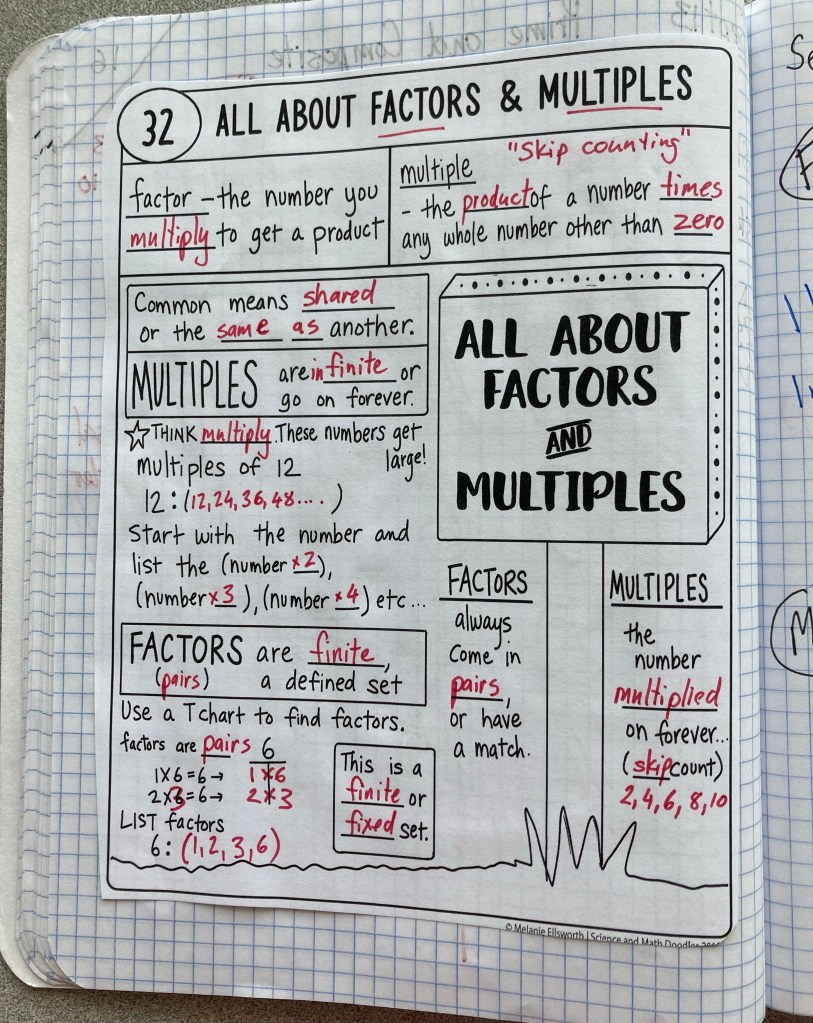 Prime and Composite
32
ALL ABOUT FACTORS & MULTIPLES
factor - the number you
multiply to get a product
multiple "skip counting"
- the product of a number times
any whole number other than zero
Common means shared
or the same as another.
MULTIPLES are infinite or
go on forever.
☆ THINK multiply. These numbers get
large!
multiples of 12
12: (12, 24, 36, 48.... )
Start with the number and
list the (number x2),
(number x3), (number x4) etc...
FACTORS are finite,
(pairs) a defined set
Use a Tchart to find factors.
factors are pairs 6
1x6=6→ 1x6
2x3=6→ 2x3
LIST factors
6: (1,2,3,6)
This is a
finite or
fixed set.
ALL ABOUT
FACTORS
AND
MULTIPLES
FACTORS
always
come in
pairs,
or have
a match.
MULTIPLES
the
number
multiplied
on forever...
(skip count)
2,4,6,8,10
© Melanie Ellsworth | Science and Math Doodles